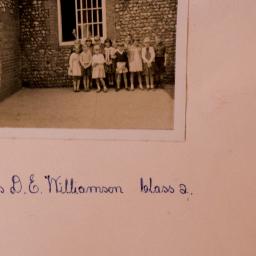 s D. E. Williamson class 2.